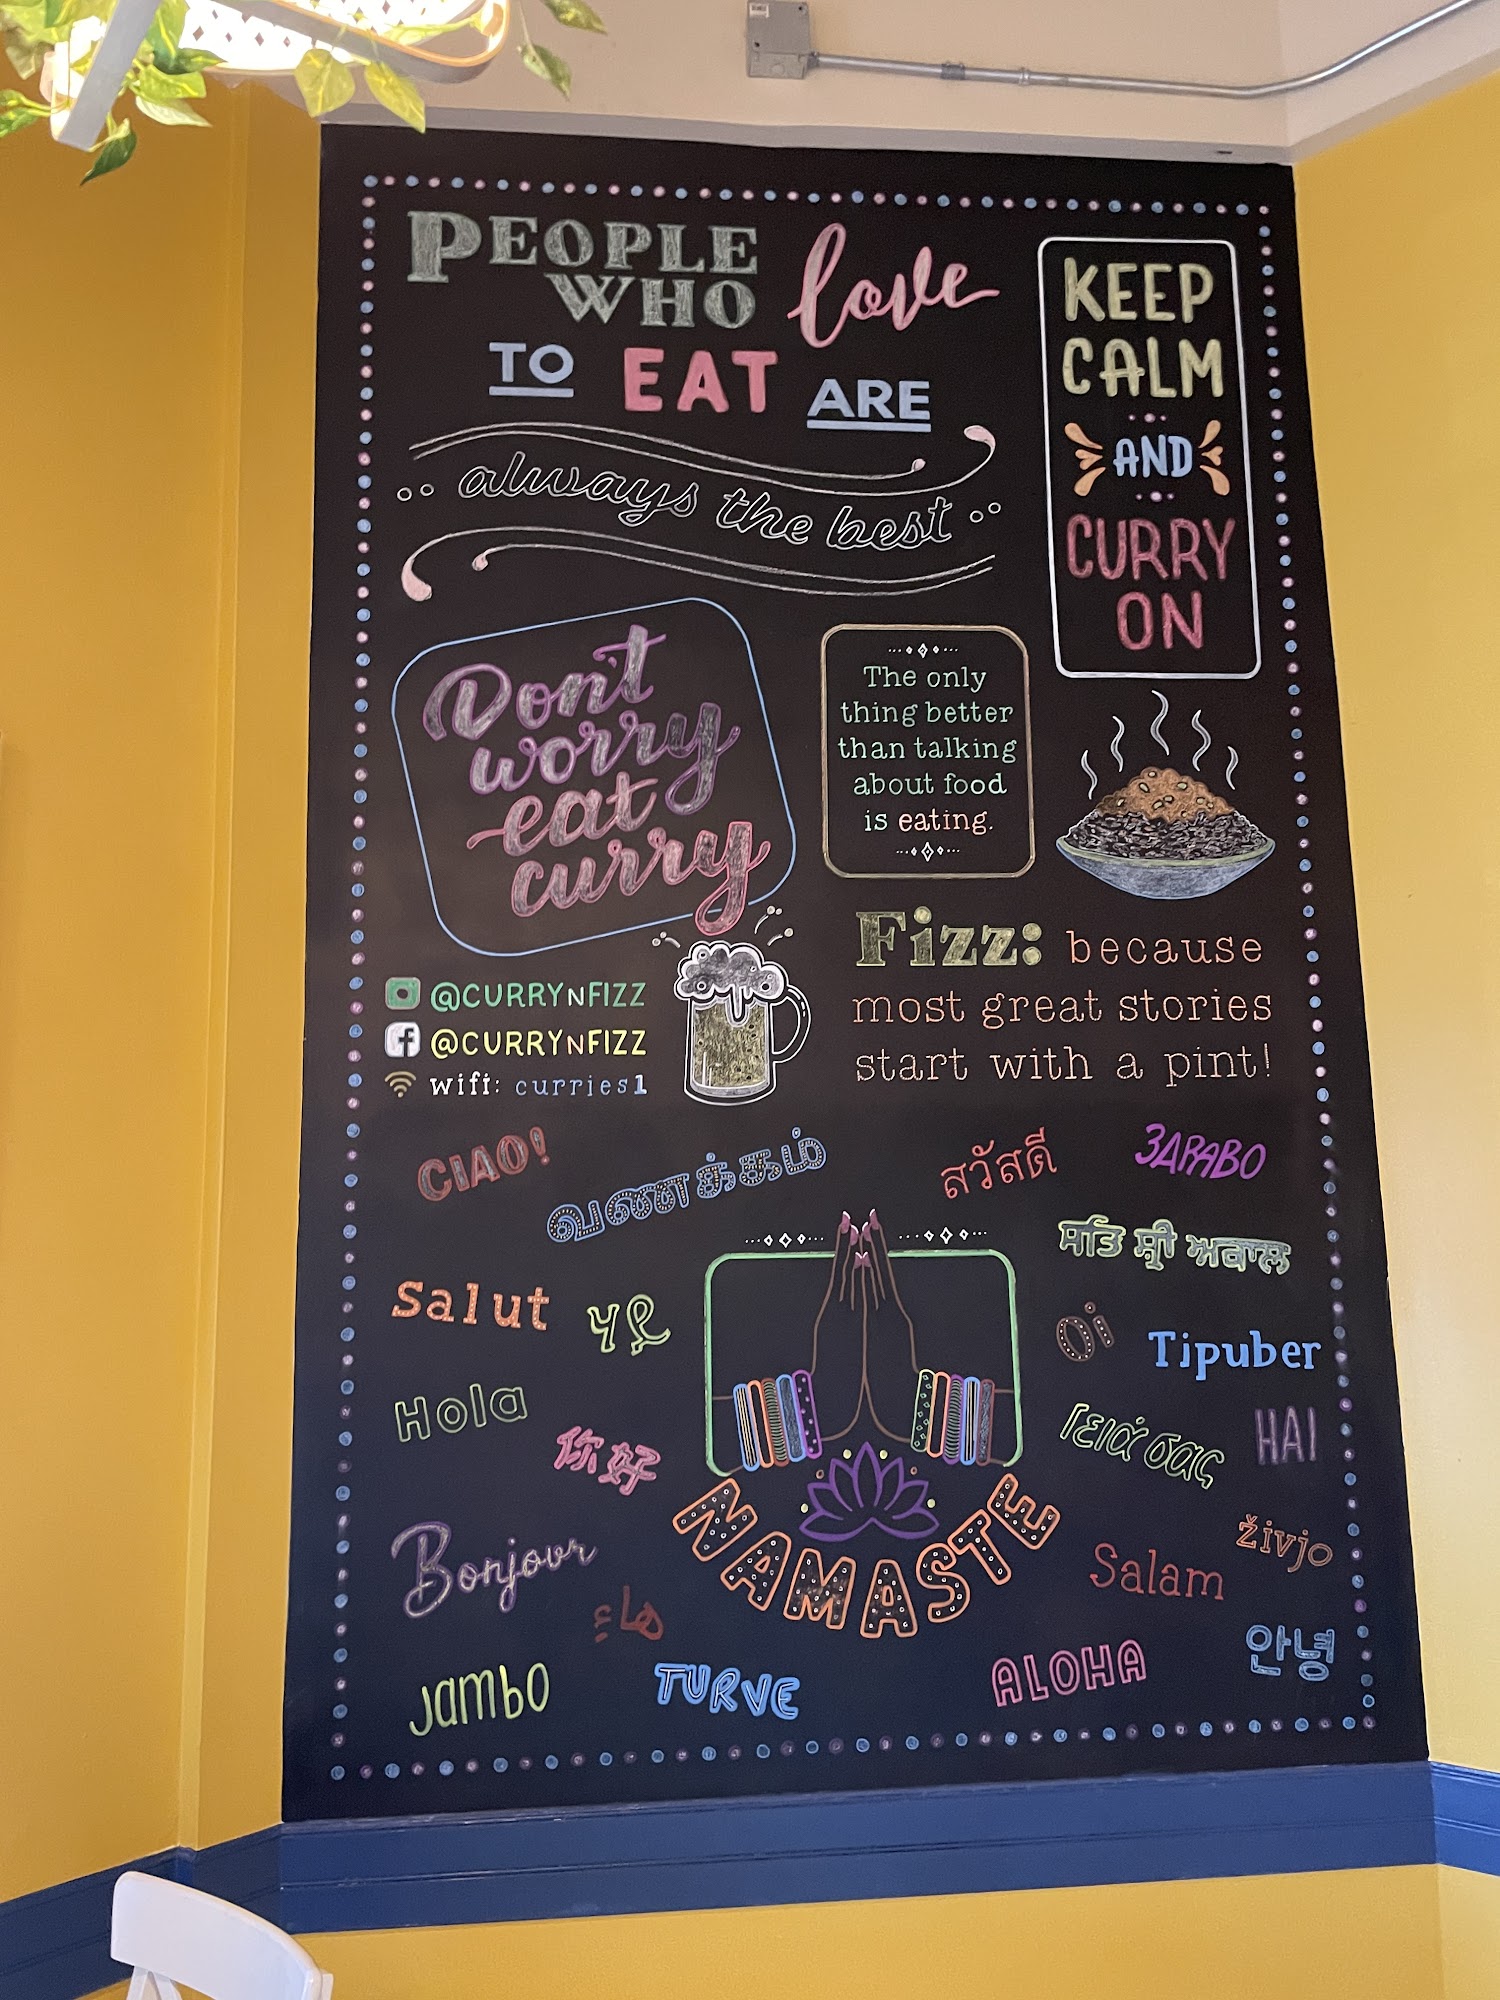 PEOPLE
WHO love
TO EAT ARE
always the best
KEEP
CALM
AND
CURRY
ON
Don't
worry
eat
curry
The only
thing better
than talking
about food
is eating.
@CURRYNFIZZ
@CURRYNFIZZ
wifi: curries1
Fizz: because
most great stories
start with a pint!
CIAO!
வணக்கம்
สวัสดี
ЗДРАВО
ਸਤਿ ਸ਼੍ਰੀ ਅਕਾਲ
Salut
Oi
Tjpuber
Hola
你好
Γειά σας
HAI
NAMASTE
Bonjour
živjo
Salam
안녕
Jambo
TURVE
ALOHA